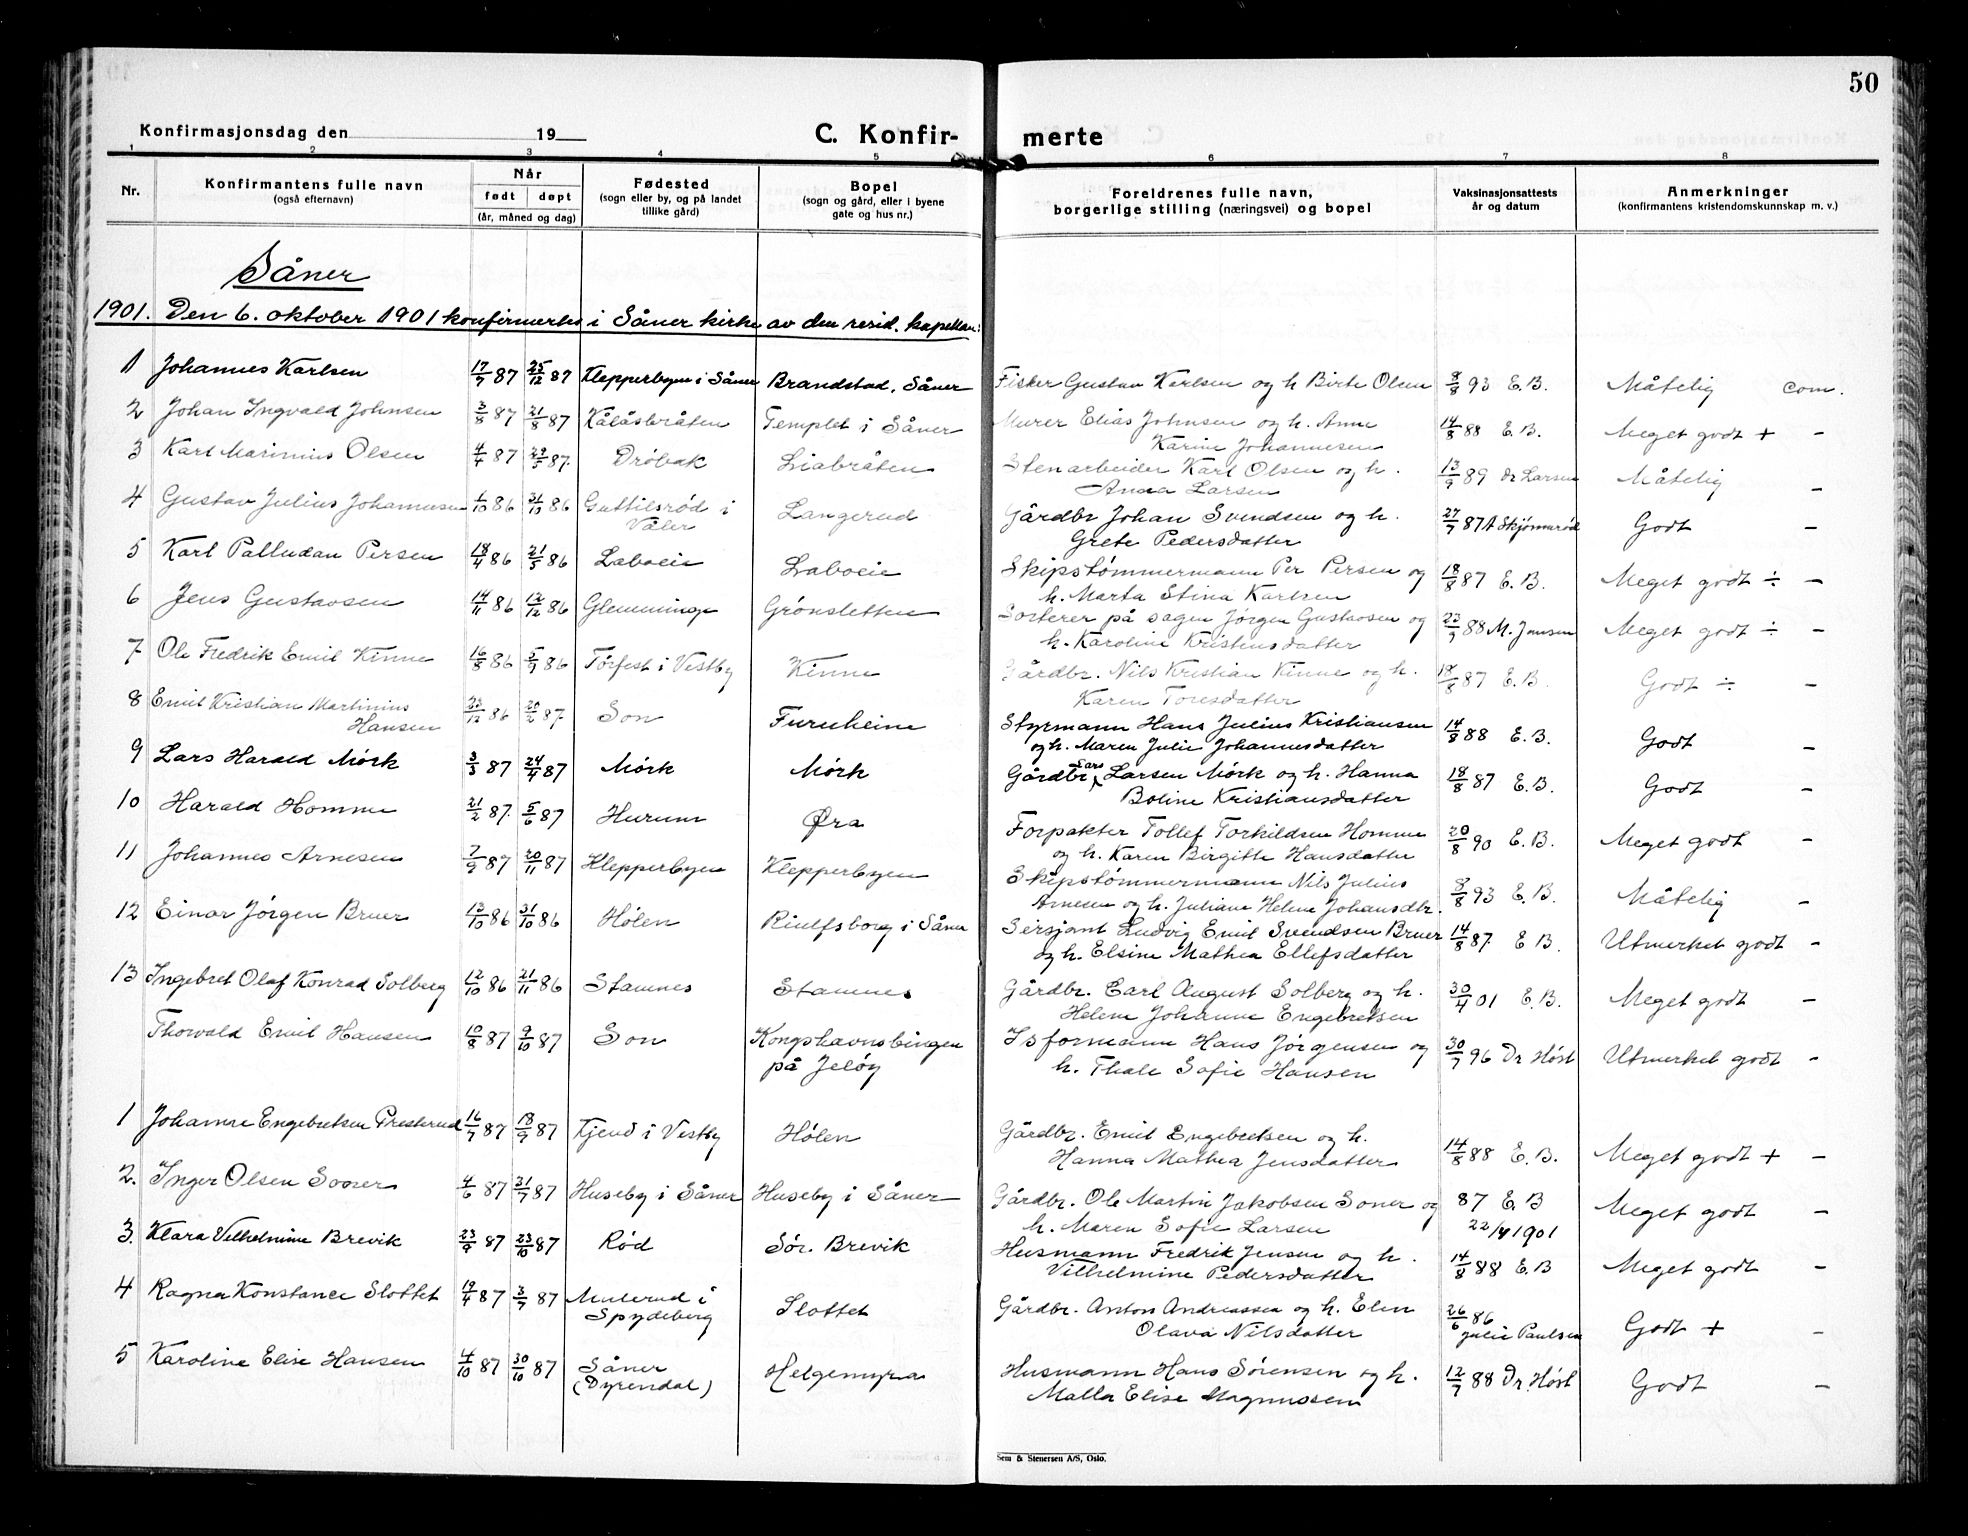 50
Konfirmasjonsdag den 19
C. Konfir- merte
1 2 3 4 5 6 7 8
Nr.
Konfirmantens fulle navn
(også efternavn)
Når
født døpt
(år, måned og dag)
Fødested
(sogn eller by, og på landet
tillike gård)
Bopel
(sogn og gård, eller i byene
gate og hus nr.)
Foreldrenes fulle navn,
borgerlige stilling (næringsvei) og bopel
Vaksinasjonsattests
år og datum
Anmerkninger
(konfirmantens kristendomskunnskap m. v.)
Såner
1901. Den 6. oktober 1901 konfirmertes i Såner kirke av den resid. kapellan:
1 Johannes Karlsen 17/7 87 25/12 87 Klepperbyen i Såner Brandstad, Såner Fisker Gustav Karlsen og h Birte Olsen 8/8 93 E.B. Måtelig com.
2 Johan Ingvald Johnsen 3/8 87 21/8 87 Kålåsbråten Templet i Såner Murer Eliás Johnsen og h. Anne
Karine Johannesen 14/8 88 E.B. Meget godt + -
3 Karl Marinius Olsen 4/4 87 29/5 87. Drøbak Liabråten Stenarbeider Karl Olsen og h.
Anna Larsen 13/9 89 Dr Larsen Måtelig -
4 Gustav Julius Johannesen 1/10 86 31/10 86 Guttilsrød i
Våler Langerud Gårdbr Johan Svendsen og h.
Grete Pedersdatter 27/7 87 A Skjønnerød Godt -
5 Karl Palludan Persen 18/4 86 21/5 86 Laboeie Laboeie Skipstømmermann Per Persen og
h. Marta Stina Karlsen 18/8 87 E.B. Meget godt ÷ -
6 Jens Gustavsen 14/11 86 12/12 86 Glemminge Grønsletten Sorterer på sagen Jørgen Gustavsen og
h. Karoline Kristensdatter 22/9 88 M. Jensen Meget godt ÷ -
7 Ole Fredrik Emil Kinne 16/8 86 5/9 86 Tørfest i Vestby Kinne Gårdbr. Nils Kristian Kinne og h.
Karen Toresdatter 18/8 87 E.B. Godt ÷ -
8 Emil Kristian Martinius
Hansen 23/12 86 20/2 87. Son Furuheim Styrmann Hans Julius Kristiansen
og h. Maren Julie Johannesdatter 14/8 88 E.B. Godt -
9 Lars Harald Mørk 3/3 87 24/4 87 Mørk Mørk Gårdbr Lars Larsen Mørk og h. Hanna
Boline Kristiansdatter 18/8 87 E.B. Godt -
10 Harald Homme 21/2 87. 5/6 87 Hurum Øra Forpakter Tollef Torkildsen Homme
og h. Karen Birgitte Hansdatter 20/8 90 E.B. Meget godt -
11 Johannes Arnesen 7/9 87 20/11 87 Klepperbyen Klepperbyen Skipstømmermann Nils Julius
Arnesen og h. Juliane Helene Johansdtr. 8/8 93 E.B. Måtelig -
12 Einar Jørgen Bruer 13/10 86 31/10 86 Hølen Riulfsborg i Såner Sersjant Ludvig Emil Svendsen Bruer
og h. Elsine Mathea Ellefsdatter 14/8 87. E B. Utmerket godt -
13 Ingebret Olaf Konrad Solberg 12/10 86 21/11 86 Stamnes Stamnes Gårdbr. Carl August Solberg og h.
Helene Johanne Engebretsen 30/4 01 E.B. Meget godt -
Thorvald Emil Hansen 10/8 87 9/10 87 Son Kongshavnsbingen
på Jeløy Isformann Hans Jørgensen og
h. Thale Sofie Hansen 30/7 96 Dr Høst Utmerket godt -
1 Johanne Engebretsen Presterud 16/7 87 18/9 87 Kjend i Vestby Hølen Gårdbr. Emil Engebretsen og h.
Hanna Mathea Jensdatter 14/8 88 E.B. Meget godt + -
2. Inger Olsen Sooner 4/6 87 31/7 87 Huseby i Såner Huseby i Såner Gårdbr. Ole Martin Jakobsen Soner og
h. Maren Sofie Larsen 87 E.B
22/4 1901 Meget godt -
3. Klara Vilhelmine Brevik 23/9 87 23/10 87 Rød Sør. Brevik Husmann Fredrik Jensen og h.
Vilhelmine Pedersdatter 14/8 88 E.B Meget godt -
4 Ragna Konstance Slottet 19/4 87 3/7 87 Mulerud i
Spydeberg Slottet Gårdbr. Anton Andreassen og h. Elen
Olava Nilsdatter 26/6 86
Julie Paulsen Godt + -
5 Karoline Elise Hansen 4/10 87 30/10 87 Såner
(Dyrendal) Helgemyra Husmann Hans Sørensen og h.
Malla Elise Magnussen 12/7 88 Dr. Høst Godt -
Sem & Stenersen A/S, Oslo.